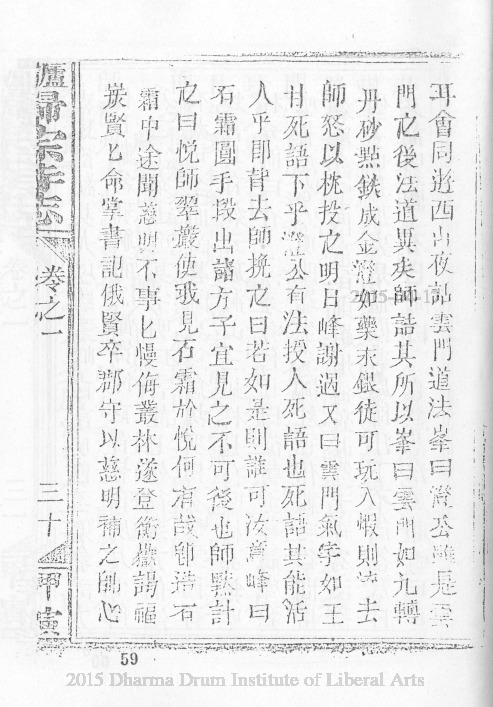 耳會同遊西山夜話雲門道法峯曰澄公雖是雲
門之後法道異矣師詰其所以峯曰雲門如九轉
丹砂點鉄成金澄公如藥汞銀徒可玩入煆則流去
師怒以枕投之明日峰謝過又曰雲門氣宇如王
甘死語下乎澄公有法授人死語也死語其能活
人乎即背去師挽之曰若如是則誰可汝意峰曰
石霜圓手段出諸方子宜見之不可後也師默計
之曰悅師翠巖使我見石霜於悅何有哉師造石
霜中途聞慈明不事事慢侮叢林遂登衡嶽謁福
嚴賢賢命掌書記俄賢卒郡守以慈明補之師心
廬山歸宗寺志
卷之一
三十
甲寅
59
2015 Dharma Drum Institute of Liberal Arts